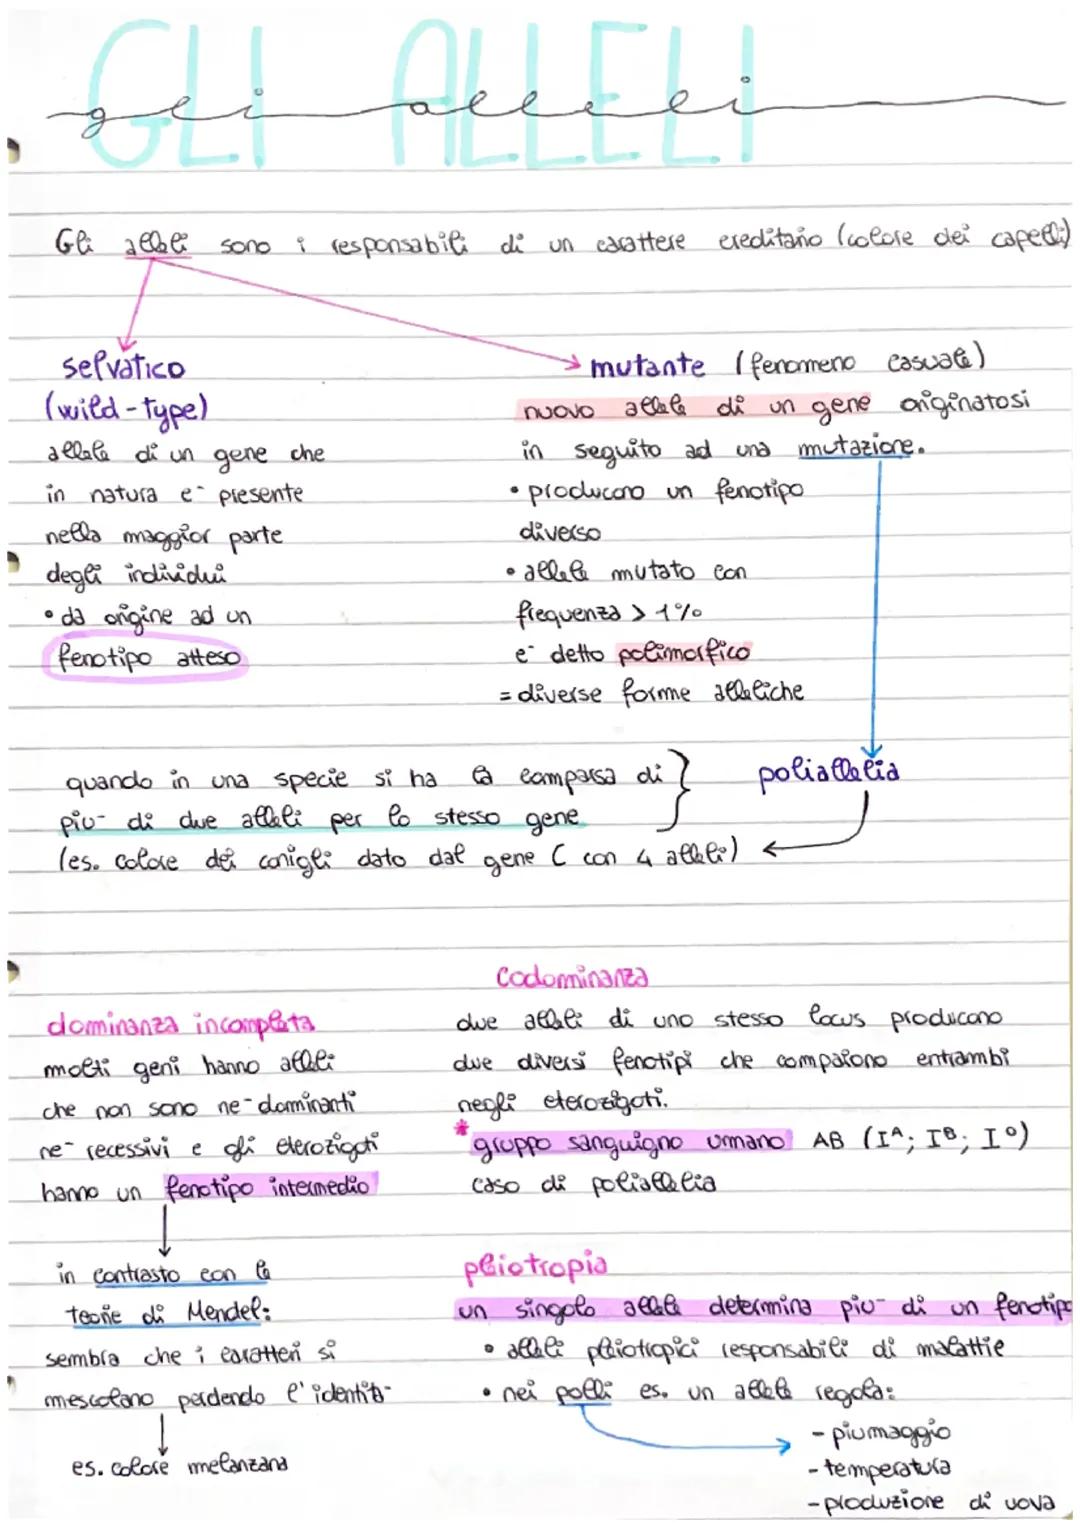 GLI ALLELI
gli alleli
Gli alleli sono i responsabili di un carattere ereditario (colore dei capelli)
selvatico
(wild-type)
allele di un gene che
in natura e- presente
nella maggior parte
degli individui
• da origine ad un
fenotipo atteso
mutante (fenomeno casuale)
nuovo allele di un gene originatosi
in seguito ad una mutazione.
• producono un fenotipo
diverso
• allele mutato con
frequenza > 1%
e- detto polimorfico
= diverse forme alleliche
poliallelia
quando in una specie si ha la comparsa di
piu- di due alleli per lo stesso gene
(es. colore dei conigli dato dal gene C con 4 alleli)
dominanza incompleta
molti geni hanno alleli
che non sono ne- dominanti
ne- recessivi e gli eterozigoti
hanno un fenotipo intermedio
in contrasto con le
teorie di Mendel:
sembra che i caratteri si
mescolano perdendo l'identita-
es. colore melanzana
Codominanza
due alleli di uno stesso locus producono
due diversi fenotipi che compaiono entrambi
negli eterozigoti.
* gruppo sanguigno umano AB (Iᴬ; Iᴮ; I⁰)
caso di poliallelia
pleiotropia
un singolo allele determina piu- di un fenotipo
• alleli pleiotropici responsabili di malattie
• nei polli es. un allele regola:
- piumaggio
- temperatura
- produzione di uova